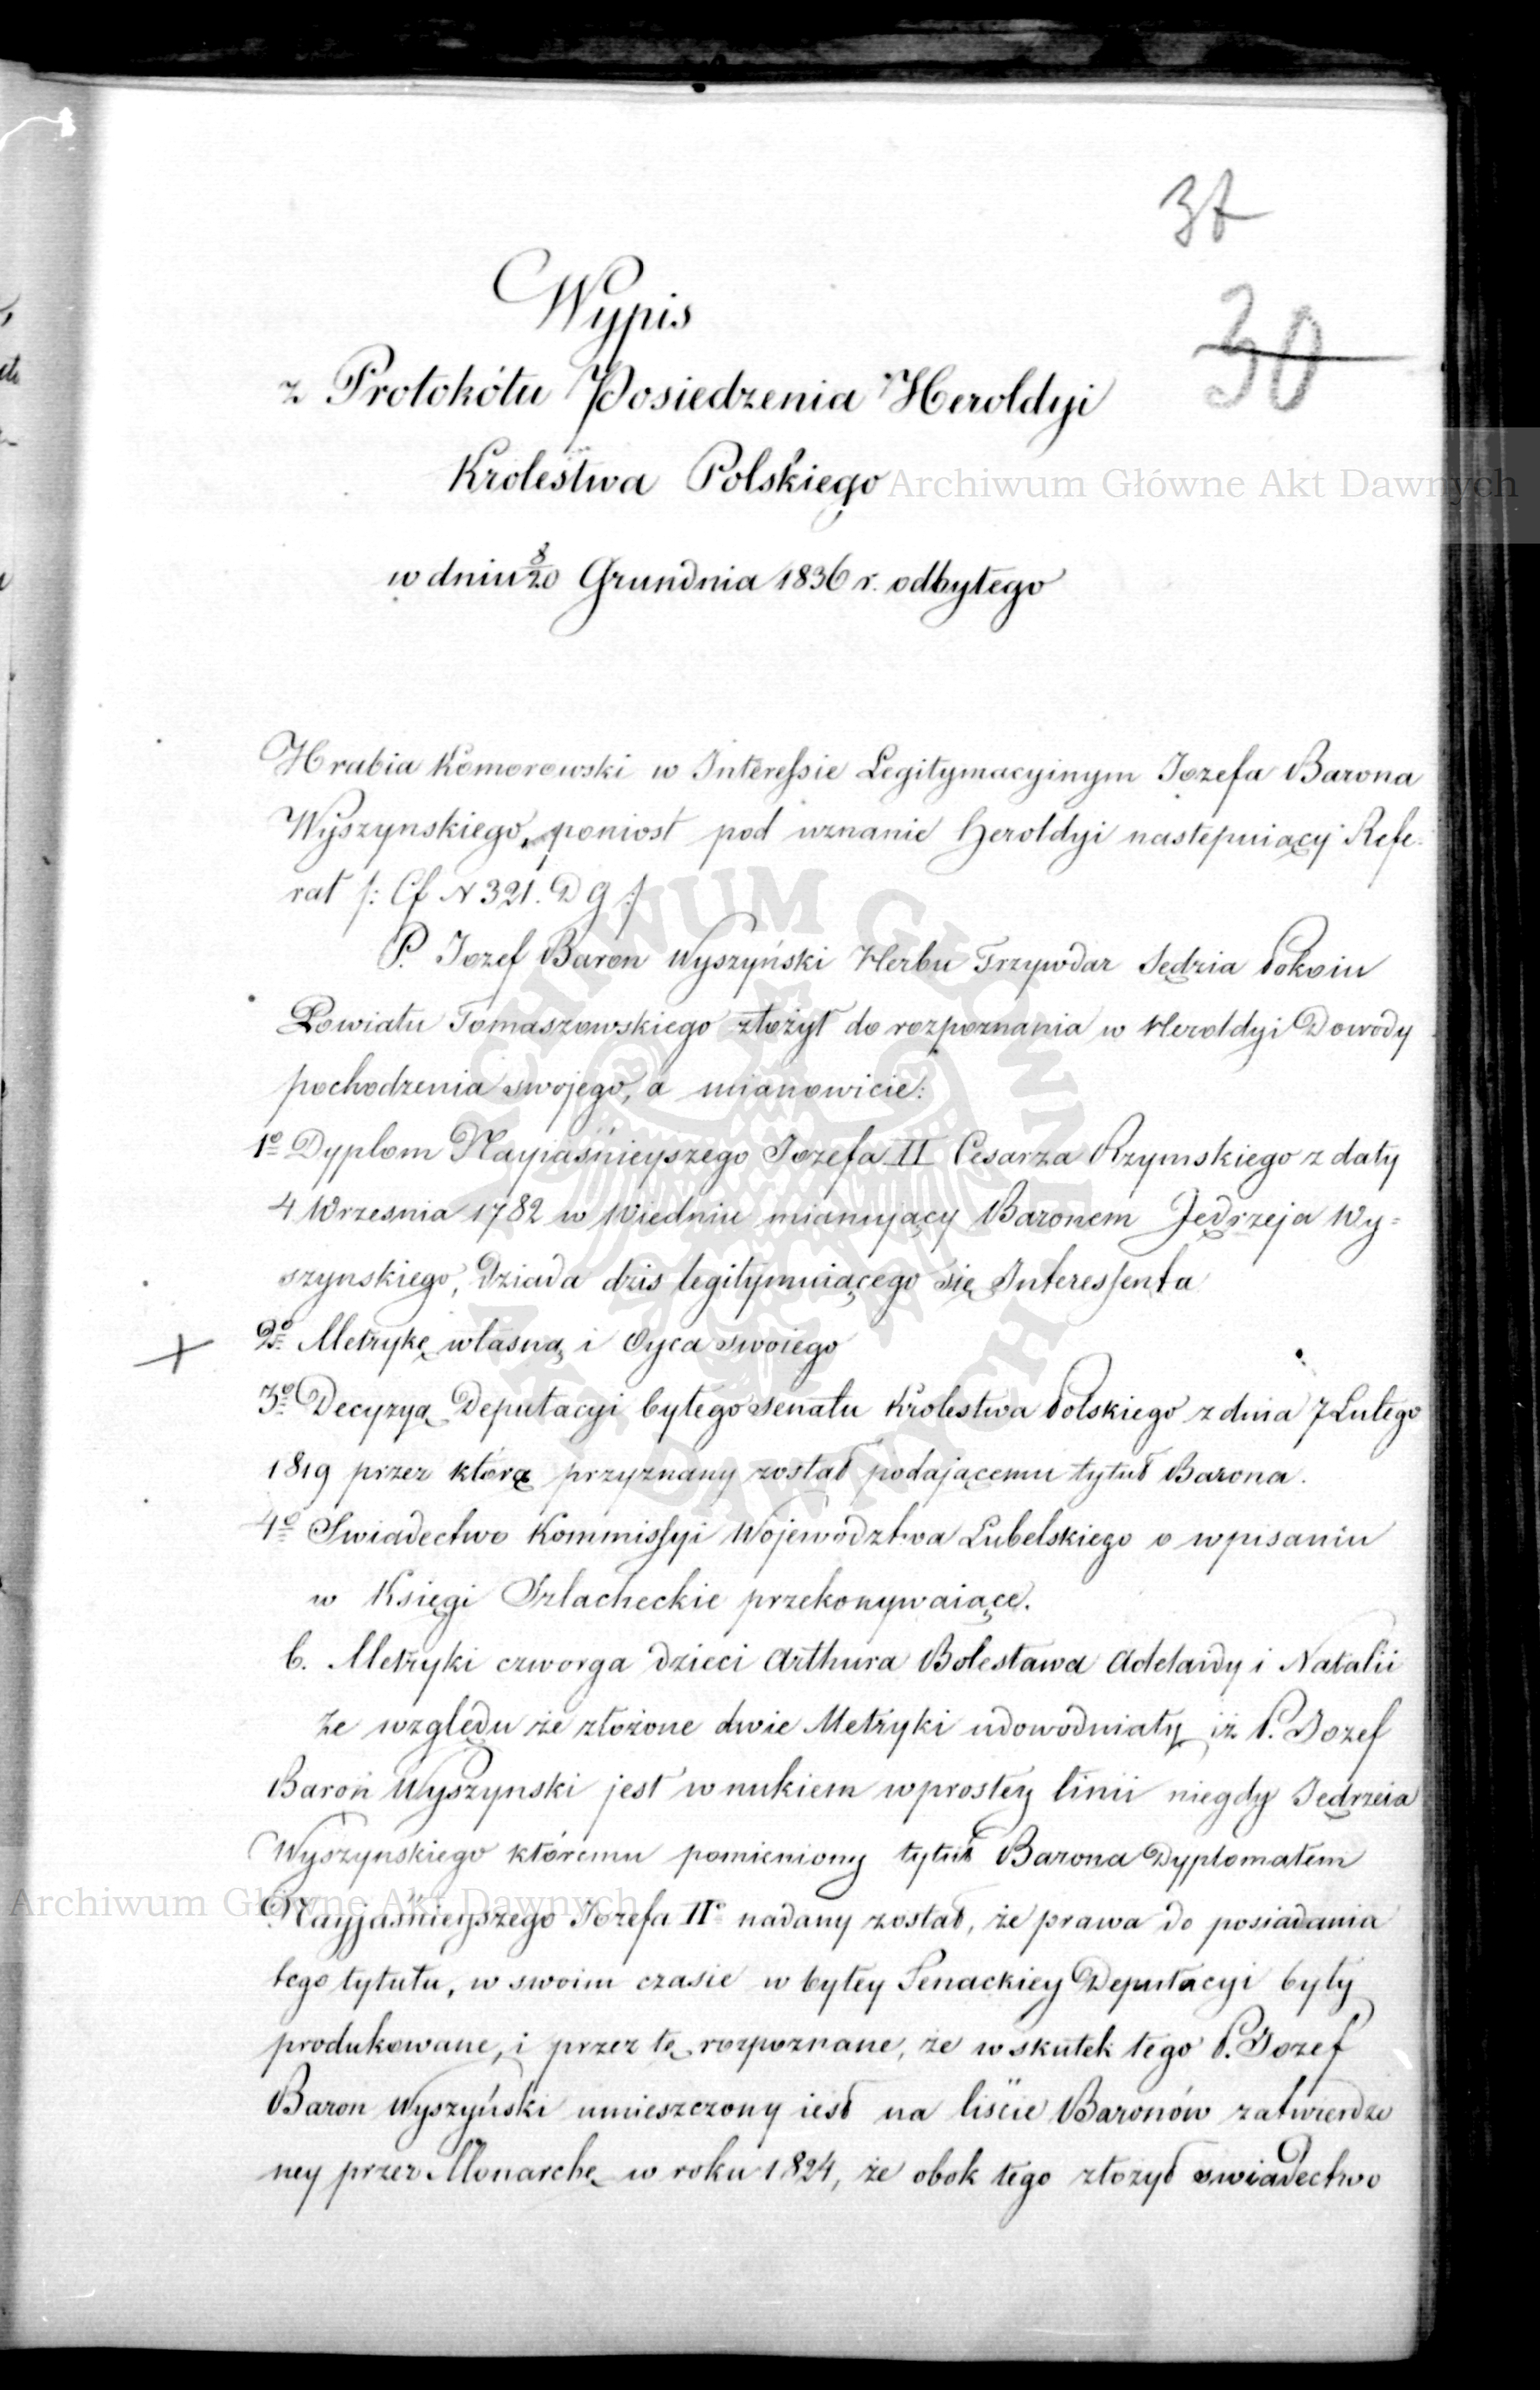 37
30
Wypis
z Protokółu Posiedzenia Heroldyi
Królestwa Polskiego
Archiwum Główne Akt Dawnych
w dniu 8/20 Grundnia 1836 r. odbytego
Hrabia Komorowski w Interessie Legitymacyinym Jozefa Barona
Wyszynskiego, poniosł pod uznanie Heroldyi nastepuiący Refe-
rat /: Cf N 321. D g :/
P. Jozef Baron Wyszyński Herbu Trzywdar Sędzia Pokoiu
Powiatu Tomaszowskiego złożył do rozpoznania w Heroldyi Dowody
pochodzenia swojego, a mianowicie:
1º Dyplom Nayiaśnieyszego Jozefa II Cesarza Rzymskiego z daty
4 Wrzesnia 1782 w Wiedniu mianujący Baronem Jędrzeja Wy=
szynskiego, Dziada dzis legitymuiącego się Interessenta
2º Metrykę własną i Oyca swoiego
3º Decyzyą Deputacyi byłego Senatu Krolestwa Polskiego z dnia 7 Lutego
1819 przez którą przyznany został podającemu tytuł Barona.
4º Swiadectwo Kommissyi Wojewodztwa Lubelskiego o wpisaniu
w Księgi Szlacheckie przekonywaiące.
6. Metryki czworga dzieci Arthura Bolesława Adelaidy i Natalii
Ze względu że złożone dwie Metryki udowodniały iż P. Jozef
Baron Wyszynski jest wnukiem w prostey linii niegdy Jędrzeia
Wyszynskiego któremu pomieniony tytuł Barona Dyplomatem
Archiwum Główne Akt Dawnych
Nayjaśnieyszego Jozefa IIº nadany został, że prawa do posiadania
tego tytułu, w swoim czasie w byłey Senackiey Deputacyi były
produkowane, i przez tę rozpoznane, że w skutek tego P. Jozef
Baron Wyszyński umieszczony iest na liście Baronów zatwierdzo
ney przez Monarchę w roku 1824, że obok tego złożył swiadectwo
ARCHIWUM GŁÓWNE
AKT DAWNYCH